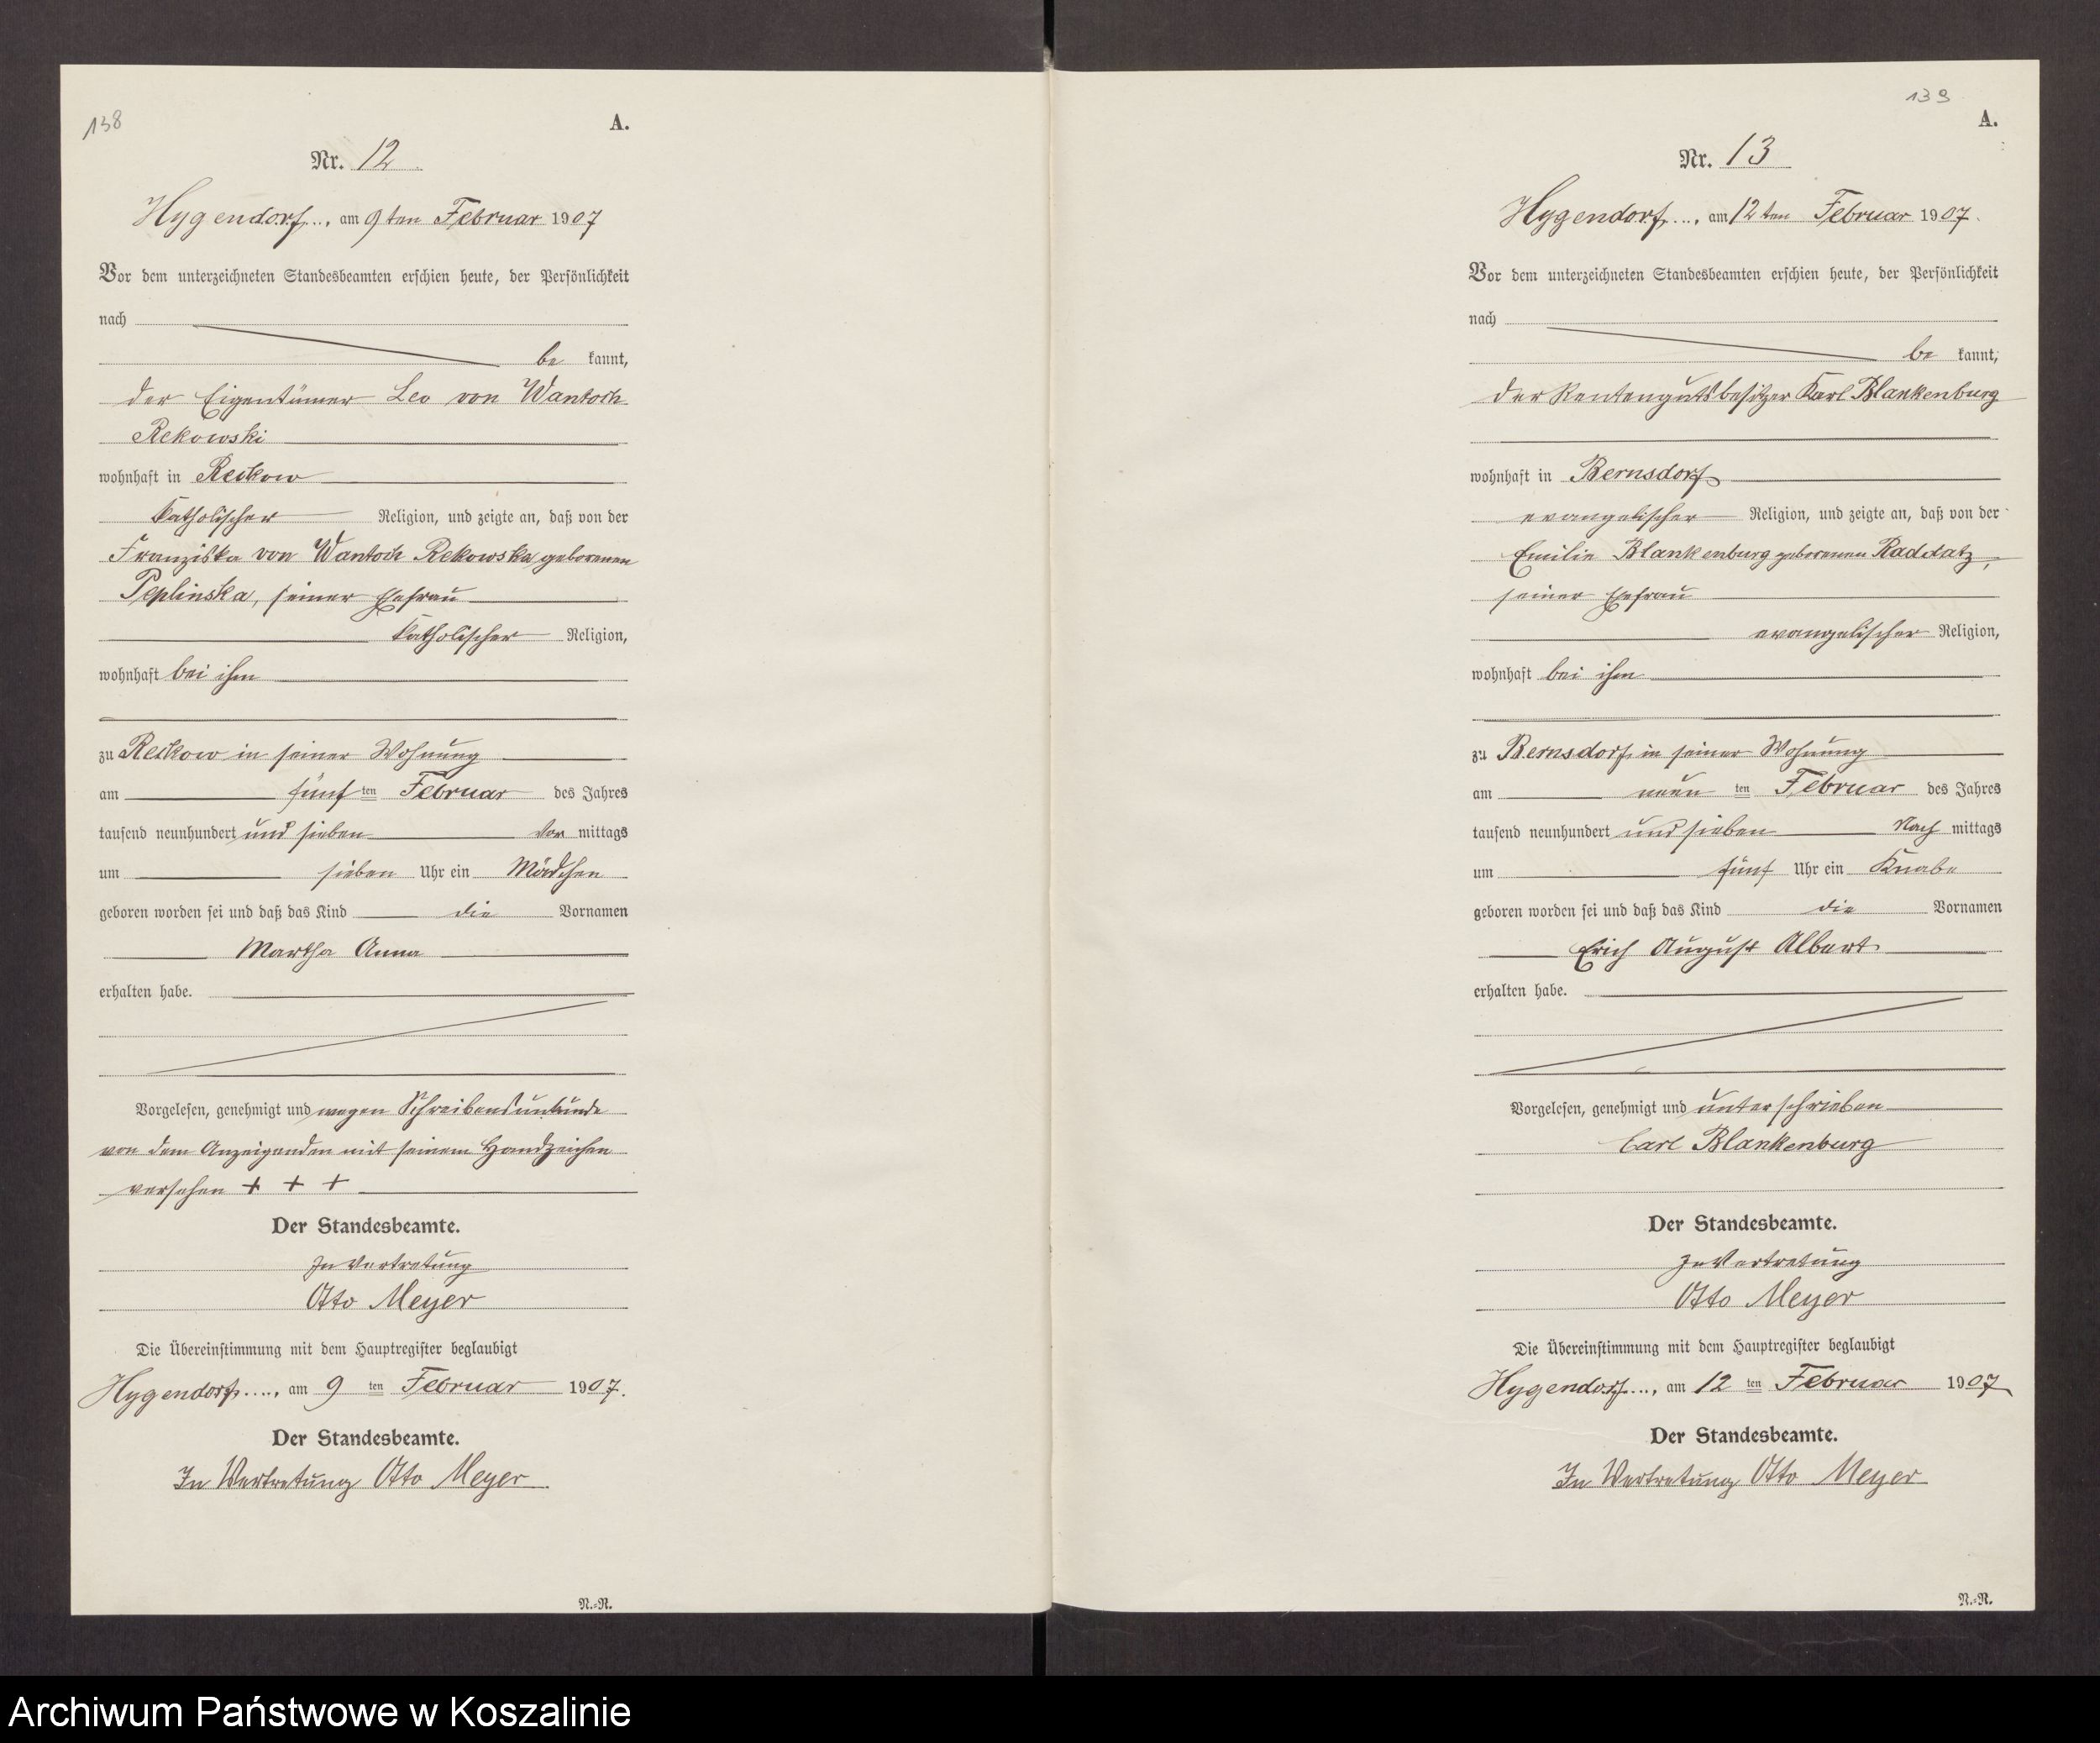 138
A.
Nr. 12
Hygendorf, am 9ten Februar 1907
Vor dem unterzeichneten Standesbeamten erschien heute, der Persönlichkeit
nach
be kannt,
der Eigentümer Leo von Wantoch
Rekowski
wohnhaft in Reckow
katholischer Religion, und zeigte an, daß von der
Franziska von Wantoch Rekowska geborenen
Peplinska, seiner Ehefrau
katholischer Religion,
wohnhaft bei ihm
zu Reckow in seiner Wohnung
am fünf ten Februar des Jahres
tausend neunhundert und sieben Vor mittags
um sieben Uhr ein Mädchen
geboren worden sei und daß das Kind die Vornamen
Martha Anna
erhalten habe.
Vorgelesen, genehmigt und wegen Schreibensunkunde
von dem Anzeigenden mit seinem Handzeichen
versehen + + +
Der Standesbeamte.
In Vertretung
Otto Meyer
Die Übereinstimmung mit dem Hauptregister beglaubigt
Hygendorf, am 9 ten Februar 1907.
Der Standesbeamte.
In Vertretung Otto Meyer
N.=R.
139
A.
Nr. 13
Hygendorf, am 12ten Februar 1907.
Vor dem unterzeichneten Standesbeamten erschien heute, der Persönlichkeit
nach
be kannt,
der Rentengutsbesitzer Karl Blankenburg
wohnhaft in Bernsdorf
evangelischer Religion, und zeigte an, daß von der
Emilie Blankenburg geborenen Raddatz,
seiner Ehefrau
evangelischer Religion,
wohnhaft bei ihm
zu Bernsdorf in seiner Wohnung
am neun ten Februar des Jahres
tausend neunhundert und sieben Nach mittags
um fünf Uhr ein Knabe
geboren worden sei und daß das Kind die Vornamen
Erich August Albert
erhalten habe.
Vorgelesen, genehmigt und unterschrieben
Carl Blankenburg
Der Standesbeamte.
In Vertretung
Otto Meyer
Die Übereinstimmung mit dem Hauptregister beglaubigt
Hygendorf, am 12 ten Februar 1907
Der Standesbeamte.
In Vertretung Otto Meyer
N.=R.
Archiwum Państwowe w Koszalinie